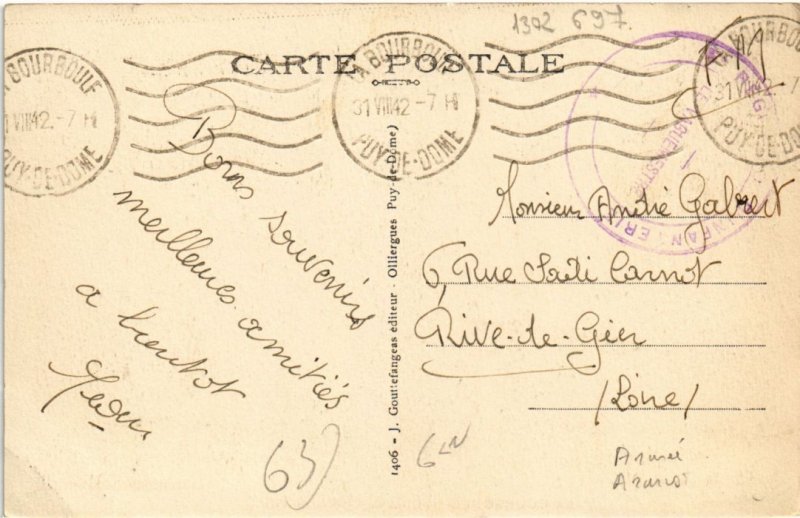 1302 697
CARTE POSTALE
LA BOURBOULE
31 VIII 42 -7 H
PUY-DE-DOME
LA BOURBOULE
31 VIII 42 -7 H
PUY-DE-DOME
LA BOURBOULE
31 VIII 42 -7
PUY-DE-DOME
INFANTERIE
Bons souvenirs
meilleures amitiés
a bientot
Jean
Monsieur André Gabert
6, Rue Sadi Carnot
Rive-de-Gier
(Loire)
1406 - J. Gouttefangeas éditeur - Olliergues Puy-de-Dome)
63)